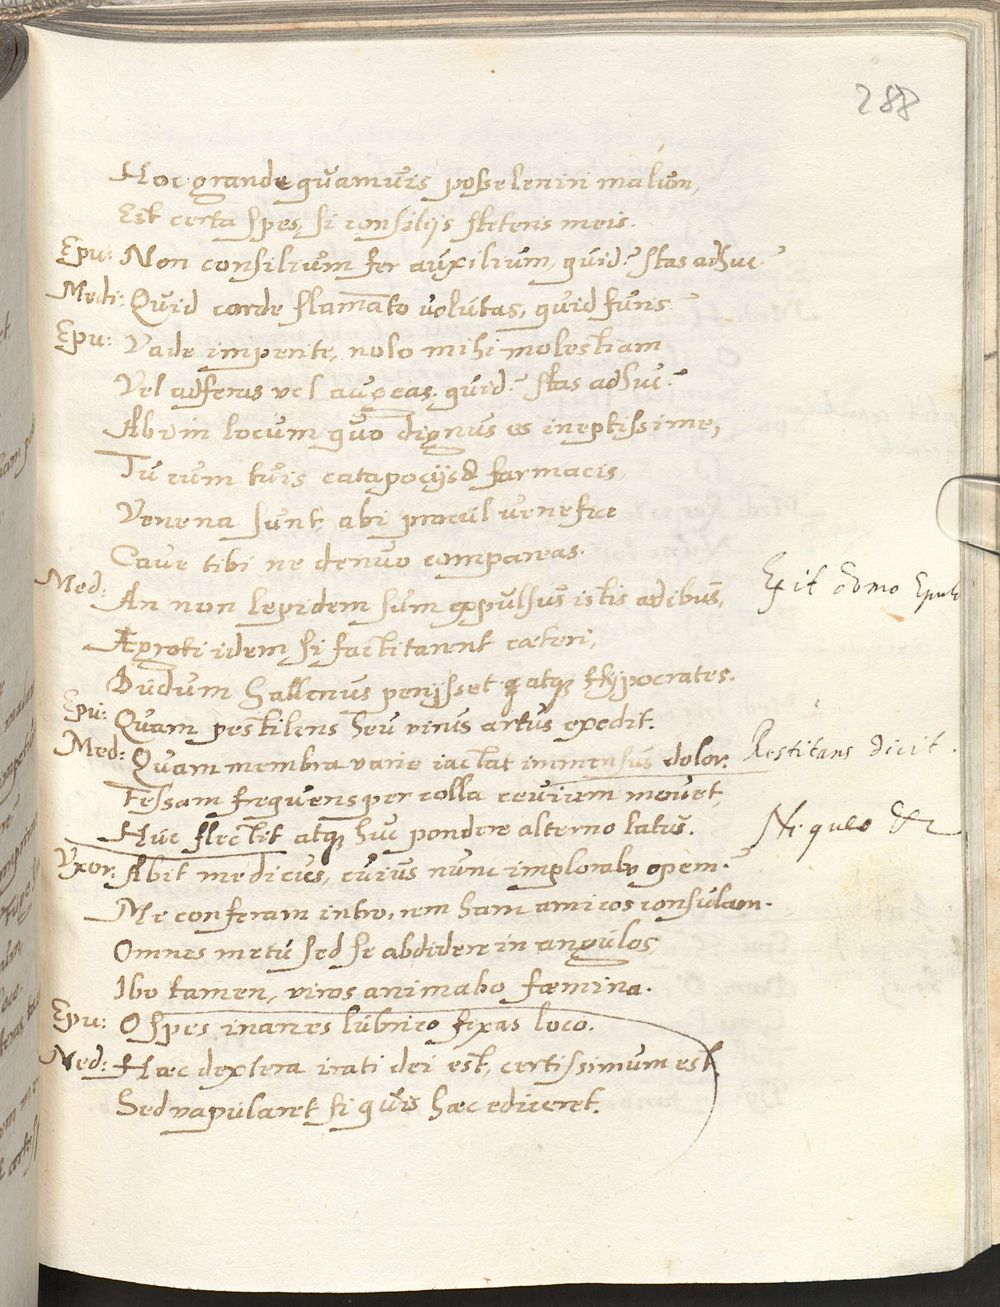 288
Hoc grande quamuis posse leniri malum,
Est certa spes, si consilijs steteris meis.
Epu: Non consilium fer auxilium, quid? stas adhuc?
Medi: Quid corde flamato uolutas, quid furis
Epu: Vade impente, nolo mihi molestiam
Vel adferas vel auoeas. quid? stas adhuc?
Abi in locum quo dignus es ineptissime,
Tu cum tuis catapocijs & farmacis,
Venena sunt, abi procul venefice
Caue tibi ne denuo compareas.
Med: An non lepidem sum expulsus istis ædibus,
Exit domo Epulo
Ægroti idem si factitarent cæteri,
Dudum hallenus perijsset atque Hypocrates.
Epu: Quam pestilens heu virus artus exedit.
Med: Quam membra varie iactat immensus dolor.
Restitans dicit.
Fessam frequens per colla ceruicem mouet,
Huc flectit atque huc pondere alterno latus.
Ni queo &c
Vxor: Abit medicus, cuius nunc implorabo opem?
Me conferam intro, rem ham amicos consulam.
Omnes metu sed se abdidere in angulos,
Ibo tamen, viros animabo fæmina.
Epu: O spes inanes lubrico fixas loco.
Med: Hæc dextera irati dei est, certissimum est,
Sed vapularet si quis hæc ediceret.